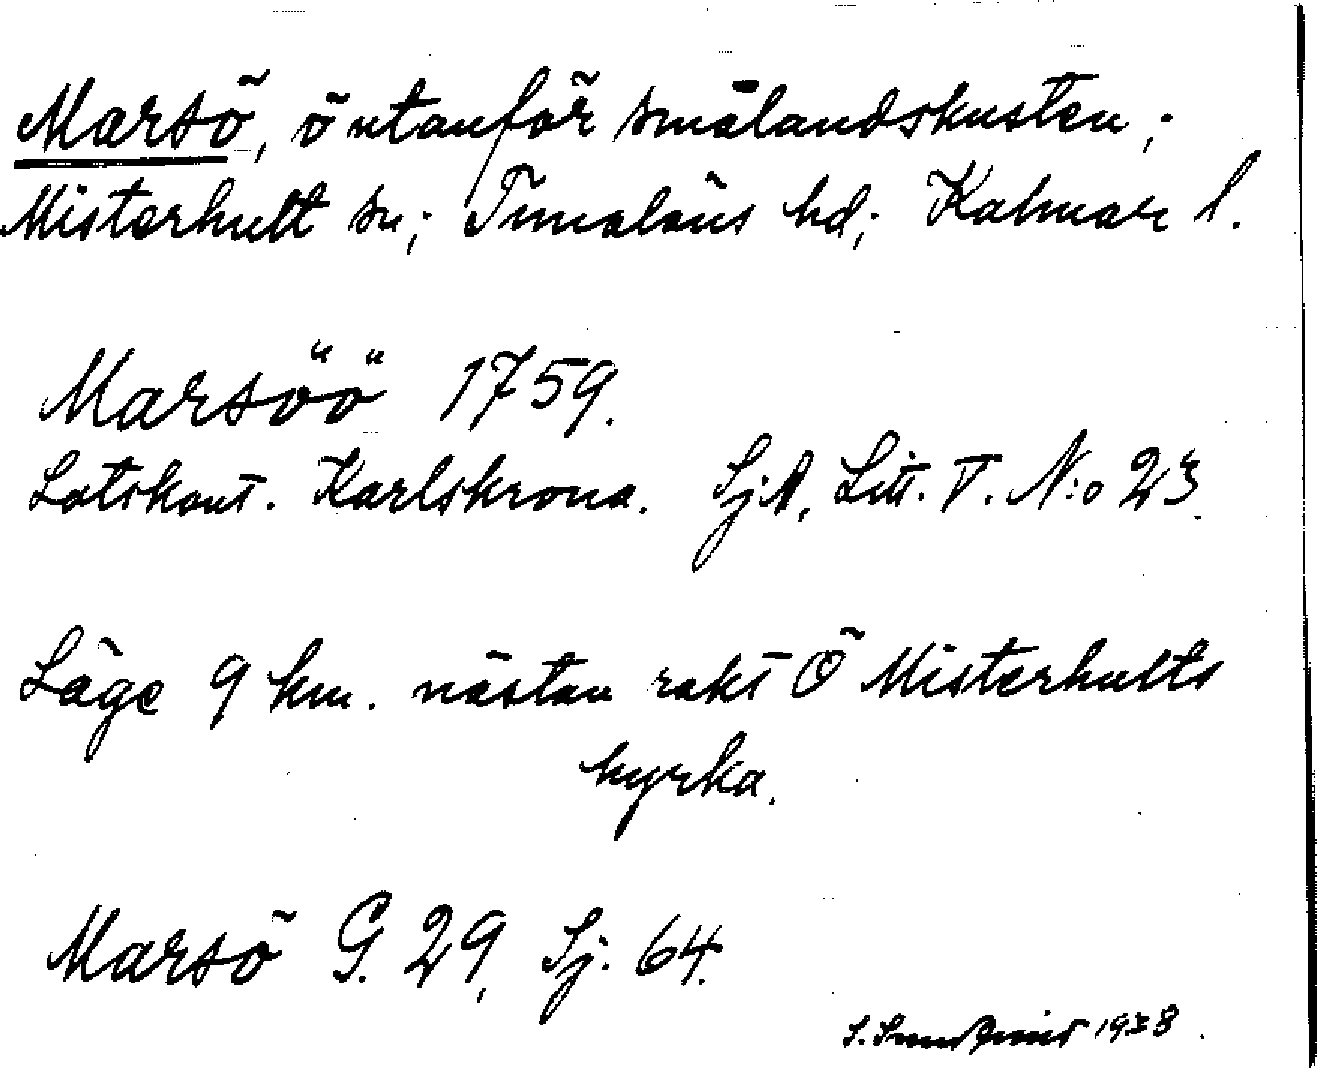 Marsö, ö utanför smålandskusten;
Misterhult sn; Tunaläns hd; Kalmar l.
Marsöö 1759.
Lotskont. Karlskrona. Sj.A. Litt. T. N:o 23.
Läge 9 km. nästan rakt Ö Misterhults
kyrka.
Marsö G. 29, Sj. 64.
1938.